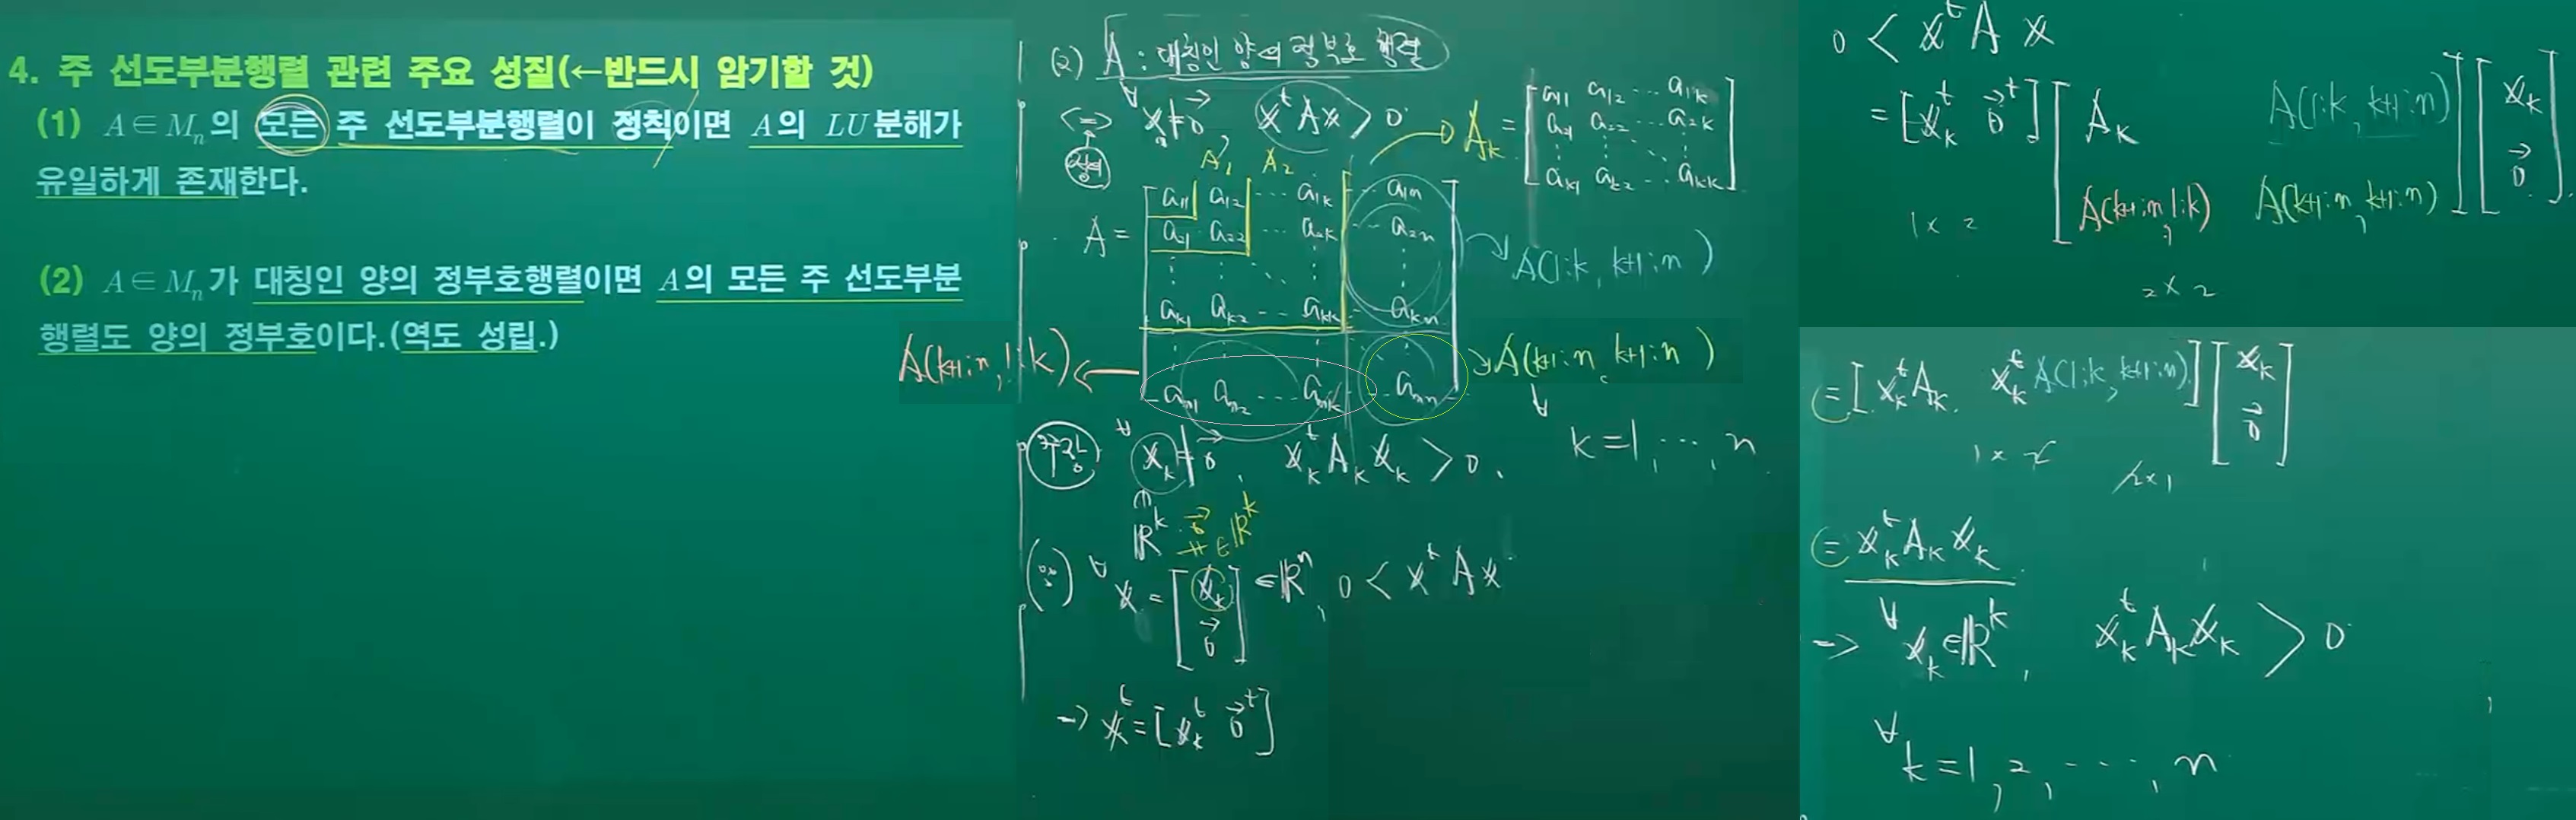 4. 주 선도부분행렬 관련 주요 성질(←반드시 암기할 것)
(1) A∈Mₙ의 모든 주 선도부분행렬이 정칙이면 A의 LU분해가
유일하게 존재한다.
(2) A∈Mₙ가 대칭인 양의 정부호행렬이면 A의 모든 주 선도부분
행렬도 양의 정부호이다.(역도 성립.)
(2) A : 대칭인 양의 정부호 행렬
⇔ ∀x≠0⃗ xᵗAx > 0
정의
A₁ A₂
A =
a₁₁ a₁₂ ··· a₁ₖ ··· a₁ₙ
a₂₁ a₂₂ ··· a₂ₖ ··· a₂ₙ
aₖ₁ aₖ₂ ··· aₖₖ ··· aₖₙ
aₙ₁ aₙ₂ ··· aₙₖ ··· aₙₙ
Aₖ =
a₁₁ a₁₂ ··· a₁ₖ
a₂₁ a₂₂ ··· a₂ₖ
aₖ₁ aₖ₂ ··· aₖₖ
A(1:k, k+1:n)
A(k+1:n, 1:k)
A(k+1:n, k+1:n)
주장 ∀xₖ≠0⃗, xₖᵗAₖxₖ > 0, ∀k=1, ···, n
∈ ℝᵏ
0⃗ ≠ ∈ℝᵏ
(∵) ∀x = [xₖ 0⃗] ∈ℝⁿ, 0 < xᵗAx
→ xᵗ = [xₖᵗ 0⃗ᵗ]
0 < xᵗAx
= [xₖᵗ 0⃗ᵗ] [Aₖ A(1:k, k+1:n)] [xₖ
A(k+1:n, 1:k) A(k+1:n, k+1:n) 0⃗]
1×2
2×2
= [xₖᵗAₖ xₖᵗA(1:k, k+1:n)] [xₖ 0⃗]
1×2
2×1
= xₖᵗAₖxₖ
⇒ ∀xₖ∈ℝᵏ, xₖᵗAₖxₖ > 0
∀k=1, 2, ···, n